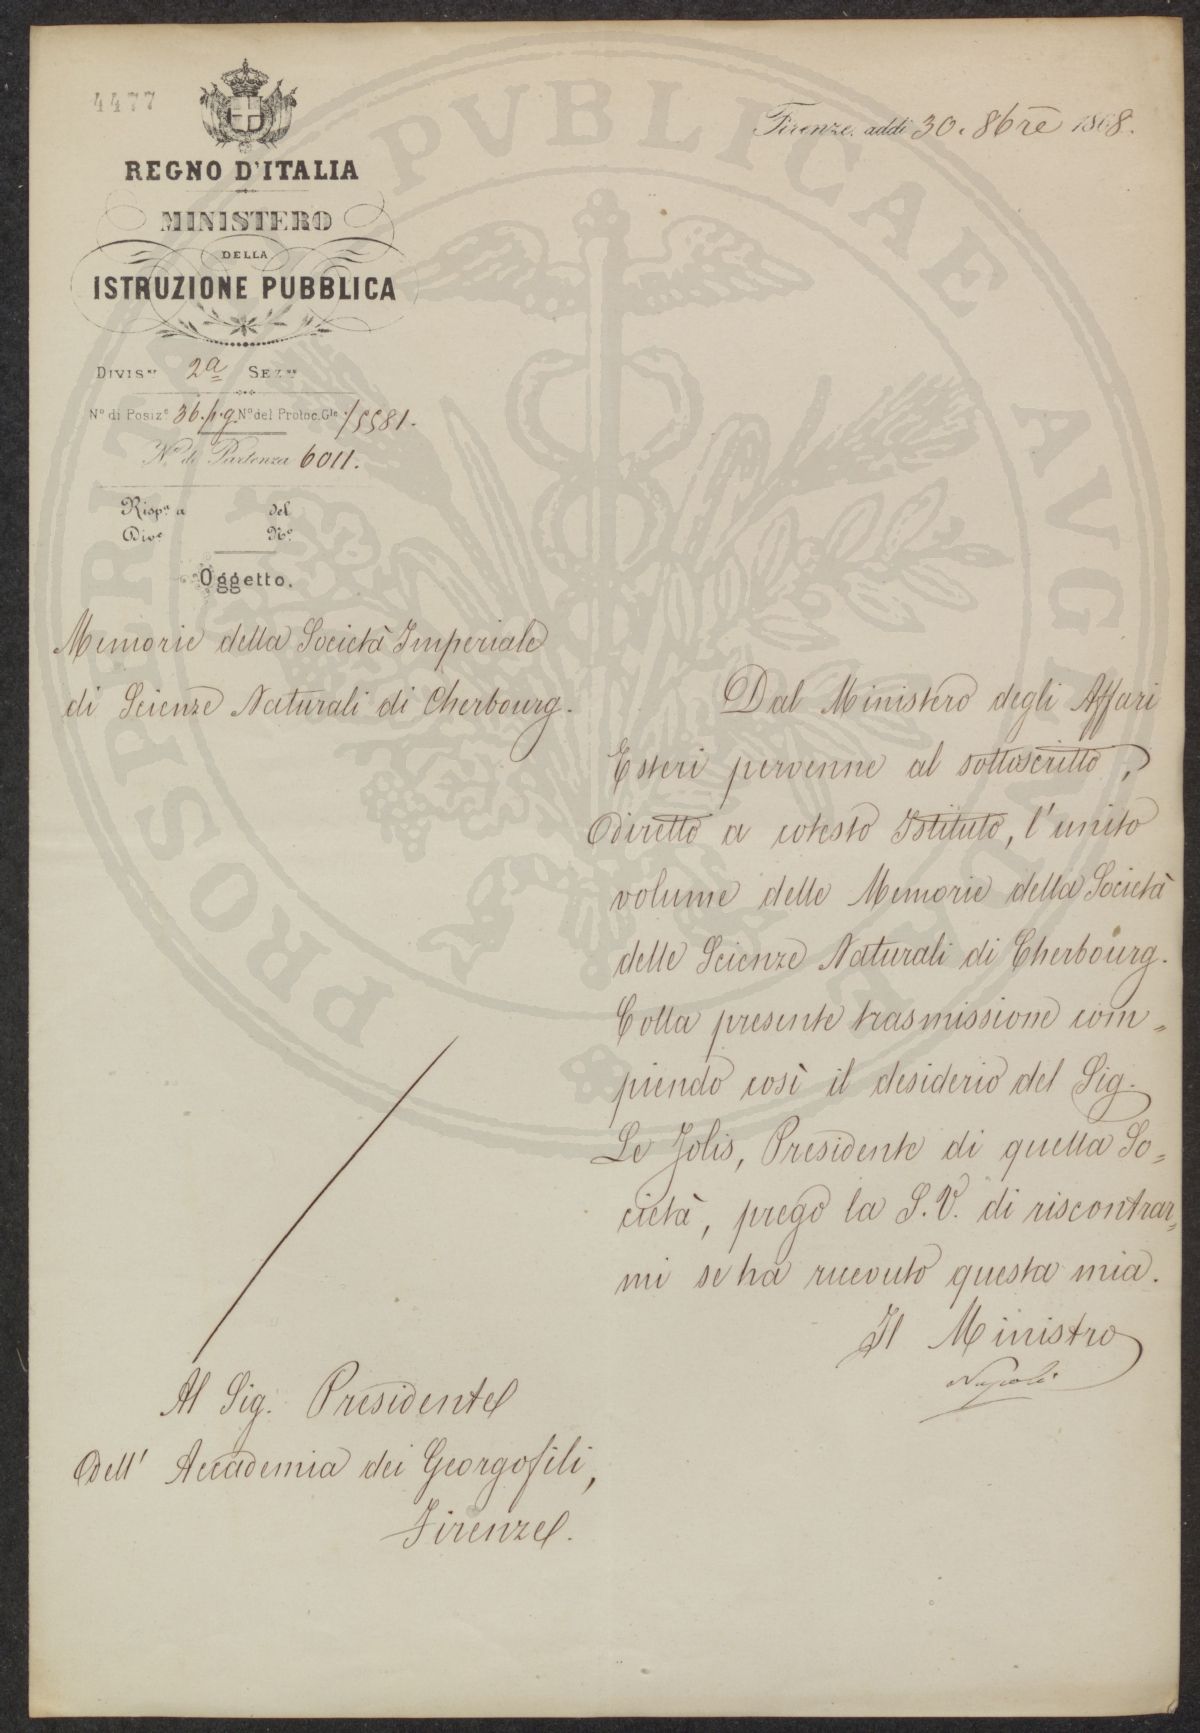 4477
Firenze, addì 30. 8bre 1868.
REGNO D'ITALIA
MINISTERO
DELLA
ISTRUZIONE PUBBLICA
DIVISne 2a SEZne
No di Posize 36.p.g. No del Protoc. Gle. 15581.
No di Partenza 6011.
Rispta a del
Dive No
Oggetto.
Memorie della Società Imperiale
di Scienze Naturali di Cherbourg.
Dal Ministero degli Affari
Esteri pervenne al sottoscritto,
diretto a cotesto Istituto, l'unito
volume delle Memorie della Società
delle Scienze Naturali di Cherbourg.
Colla presente trasmissione com=
piendo così il desiderio del Sig.
Le Jolis, Presidente di quella So=
cietà, prego la S.V. di riscontrar=
mi se ha ricevuto questa mia.
Il Ministro
Napoli
Al Sig. Presidente
Dell' Accademia dei Georgofili,
Firenze.
PROSPERITATI PVBLICAE AVGENDAE